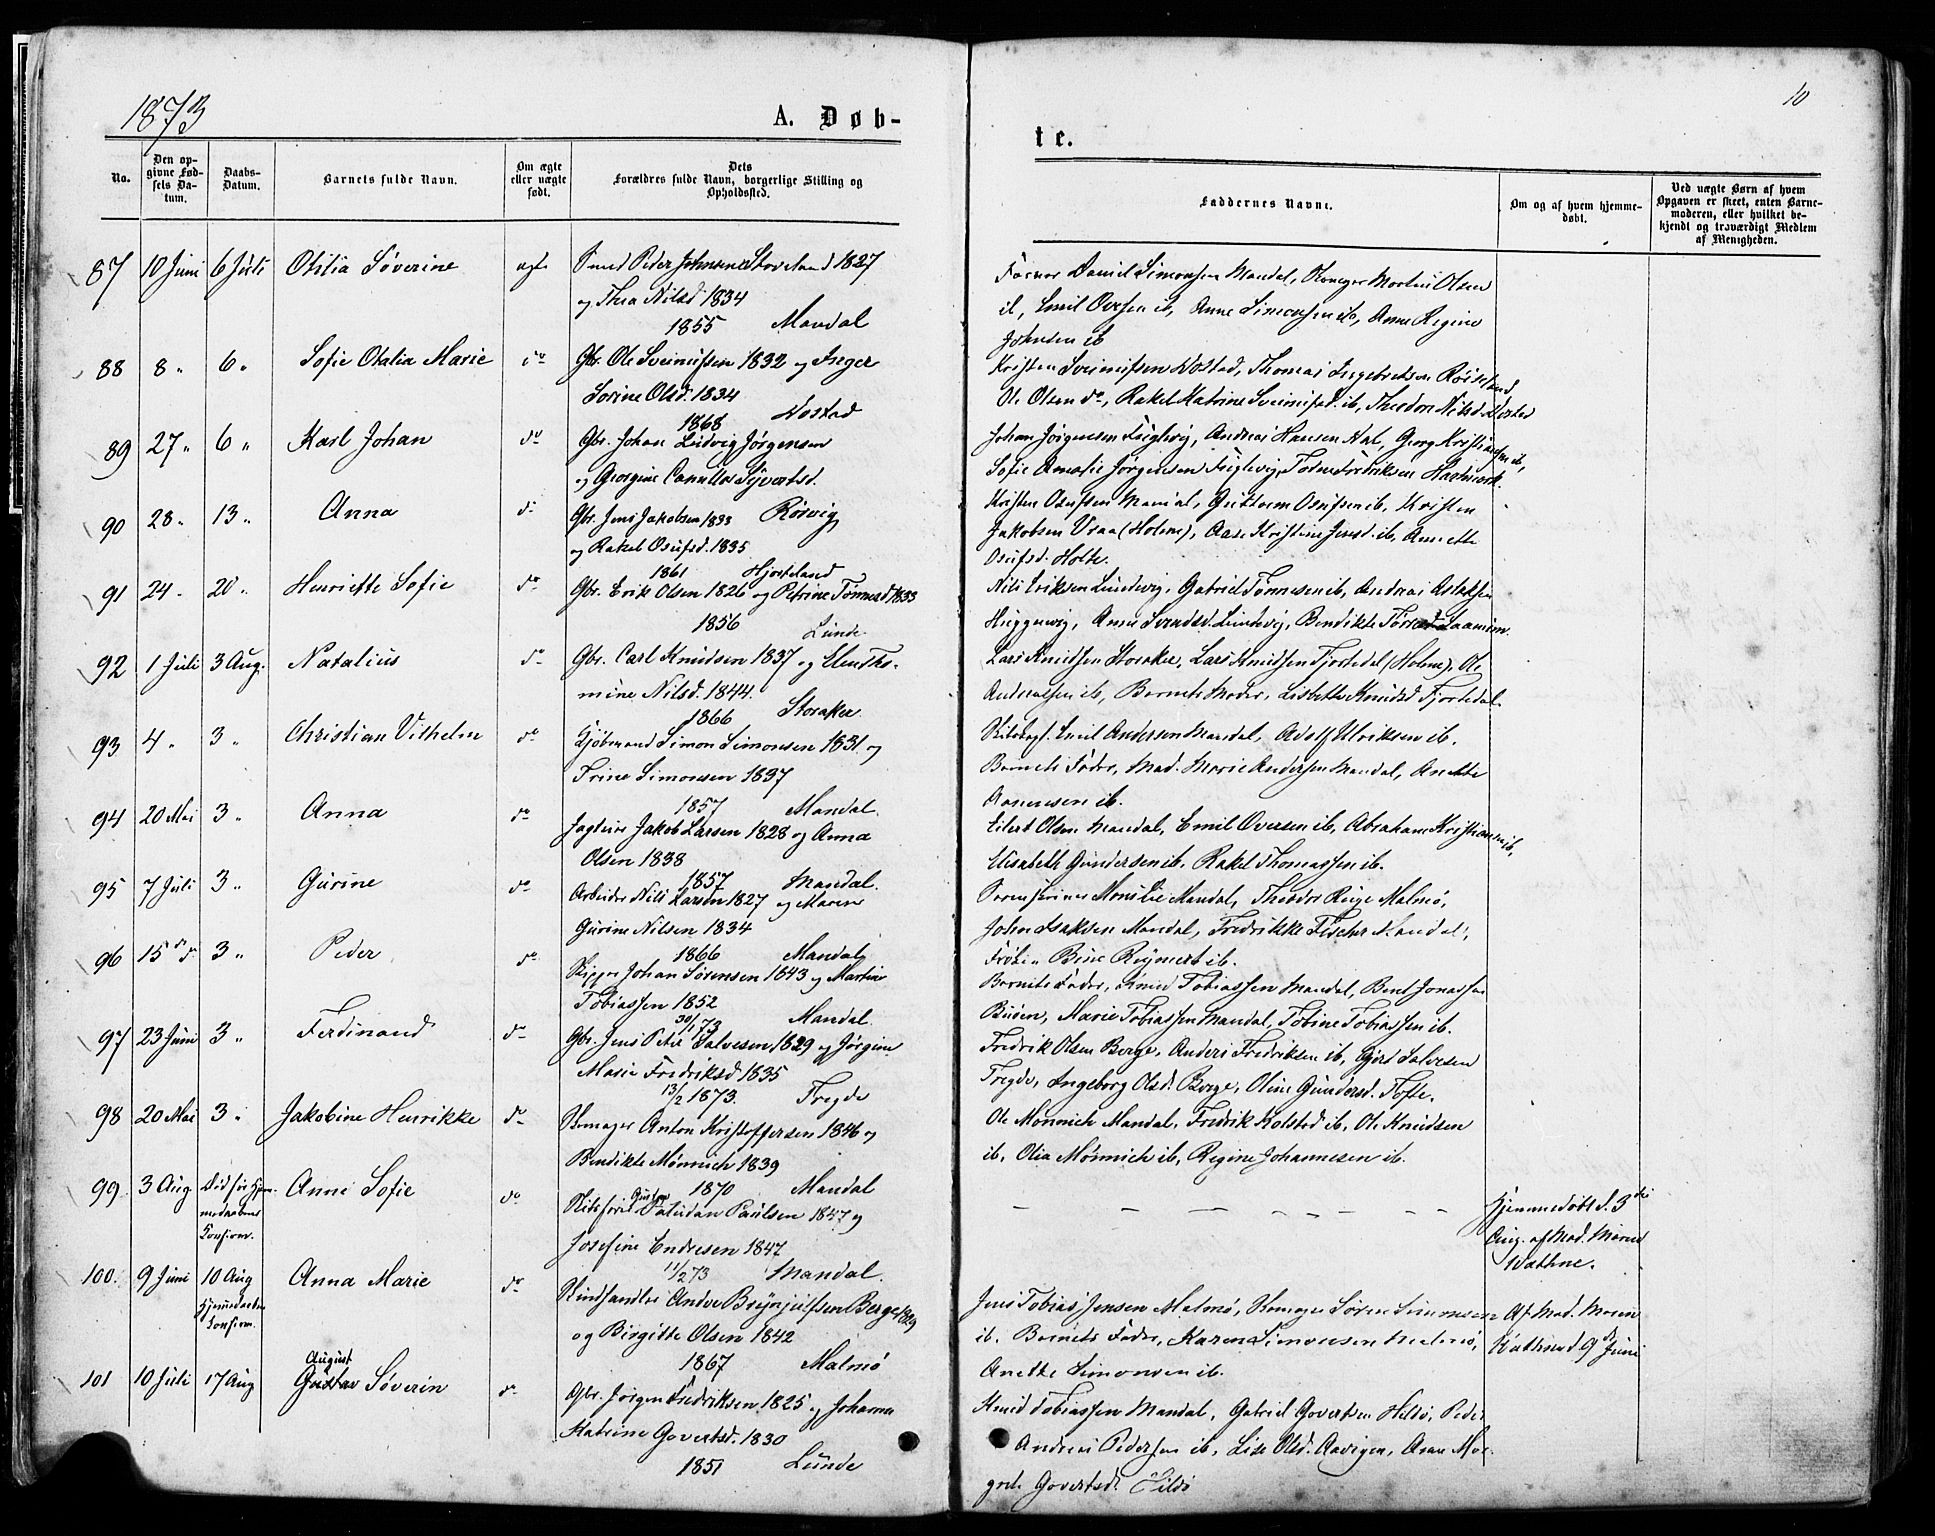 1873
A. Døb-
No.
Den op-
givne Fød-
sels Da-
tum.
Daabs-
Datum.
Barnets fulde Navn.
Om ægte
eller uægte
født.
Dets
Forældres fulde Navn, borgerlige Stilling og
Opholdssted.
87 10 Juni 6 Juli Otilia Søverine
Smed Peder Johnsen 1827
og Thea Nilsd 1834
1855 Mandal
88 8 " 6 " Sofie Otalia Marie do
Gbr. Ole Sveinufsen 1832 og Inger
Sorine Olsd. 1834
1868 Nostad
89 27 " 6 " Karl Johan do
Gbr. Johan Ludvig Jørgensen
og Georgine Sijvertsd.
Rösvig
90 28 " 13 " Anna do
Gbr. Jens Jakobsen 1833
og Rakel Osufsd. 1835
1861 Hjorteland
91 24 " 20 " Henriette Sofie do
Gbr. Erik Olsen 1826 og Petrine Tønnesd 1833
1856 Lunde
92 1 Juli 3 Aug. Natalius do
Gbr. Carl Knudsen 1837 og
mine Nilsd. 1844.
1866 Storaker
93 4 " 3 " Christian Vilhelm do
Kjøbmand Simon Simonsen 1831 og
Trine Simonsen 1837
1857 Mandal.
94 20 Mai 3 " Anna do
Jakob Larsen 1828 og Anna
Olsen 1838
1857 Mandal.
95 7 Juli 3 " Gurine do
Arbeider Nils Larsen 1827 og Maren
Gurine Nilsen 1834
1866 Mandal
96 15 do 3 " Peder do
Skipper Johan Sørensen 1843 og Martine
Tobiassen 1852
30/1 73 Mandal.
97 23 Juni 3 " Ferdinand do
Gbr. Jens Peter Salvesen 1829 og Jørgine
Marie Fredriksd 1835
13/2 1873. Tregde
98 20 Mai 3 " Jakobine Henrikke do
Skomager Anton Kristoffersen 1846 og
Bendikte Mønnich 1839
1870 Mandal
99 3 Aug Død før Hjem-
medaabens
Konfirm.
Anne Sofie do
Gustav Paludan Paulsen 1847 og
Josefine Endresen 1847
11/2 73 Mandal.
100. 9 Juni 10 Aug
Hjemmedaaben
Konfirm.
Anna Marie do
Skindhandler Andre Brynjulfsen Berge 1829
og Birgitte Olsen 1842
1867 Malmø
101 10 Juli 17 Aug August
Gustav Søverin do
Gbr. Jörgen Fredriksen 1825 og Johanna
Katrine Govertsd. 1830
1851 Lunde
10
te.
Faddernes Navne.
Om og af hvem hjemme-
døbt.
Ved uægte Børn af hvem
Opgaven er skeet, enten Barne-
moderen, eller hvilket be-
kjendt og troværdigt Medlem
af Menigheden.
Daniel Simonsen Mandal, Martin Olsen
ib, Emil Oversen ib, Anne Simonsen ib, Anne Regine
Johnsen ib
Kristen Sveinufsen Nostad, Thomas Ingebretsen Röiseland,
Ole Olsen do, Rakel Katrine Sveinufsd. ib, Theodor Nilsd. Nostad
Johan Jörgensen Fuglevig, Andreas Hansen Aal, Georg Kristiansen ib,
Sofie Amalie Jørgensen Fuglevig, Fredriksen
Kristen Osufsen Mandal, Guttorm Osufsen ib, Kristen
Jakobsen Uraal (Holme), Aase Kristine Jensd. ib, Annette
Osufsd. Holte.
Nils Eriksen Lundevig, Gabriel Tønnesen ib, Andreas Aslaksen
Anne Svendsd. Lundevig, Bendikte
Lars Knudsen Storaker, Lars Knudsen Fjortedal (Holme), Ole
Andreassen ib, Barnets Moder, Lisbette Knudsd Fjortedal.
Emil Andersen Mandal, Adolf Ulriksen ib.
Barnets Fader, Mad. Marie Andersen Mandal, Anette
Aanensen ib.
Eilert Olsen Mandal, Emil Oversen ib, Abraham Kristiansen ib,
Elisabeth Gundersen ib. Rakel Thomassen ib.
Mandal, Theodor Rüge Malmø,
John Isaksen Mandal, Fredrikke Fischer Mandal,
Frøken Bine Reymert ib.
Barnets Fader, Knud Tobiassen Mandal, Bent Jonassen
Buöen, Marie Tobiassen Mandal, Tobine Tobiassen ib.
Fredrik Olsen Berge, Anders Fredriksen ib, Gjert Salvesen
Tregde, Ingeborg Olsd. Berge, Oline Gundersd. Tofte.
Ole Mønnich Mandal, Fredrik Rolstad ib, Ole Knudsen
ib, Olia Mønnich ib, Regine Johannesen ib.
Hjemmedøbt d. 3die
Aug. af Mad. Maren
Wathne.
Jens Tobias Jensen Malmø, Skomager Søren Simonsen
ib. Barnets Fader, Karen Simonsen Malmø,
Anette Simonsen ib.
Af Mad. Maren
Wathne d 9de Juni
Knud Tobiassen Mandal, Gabriel Govertsen Hillö, Peder
Andreas Pedersen ib, Lise Olsd. Aavigen, Asne Mar-
grete Govertsd. Hillö